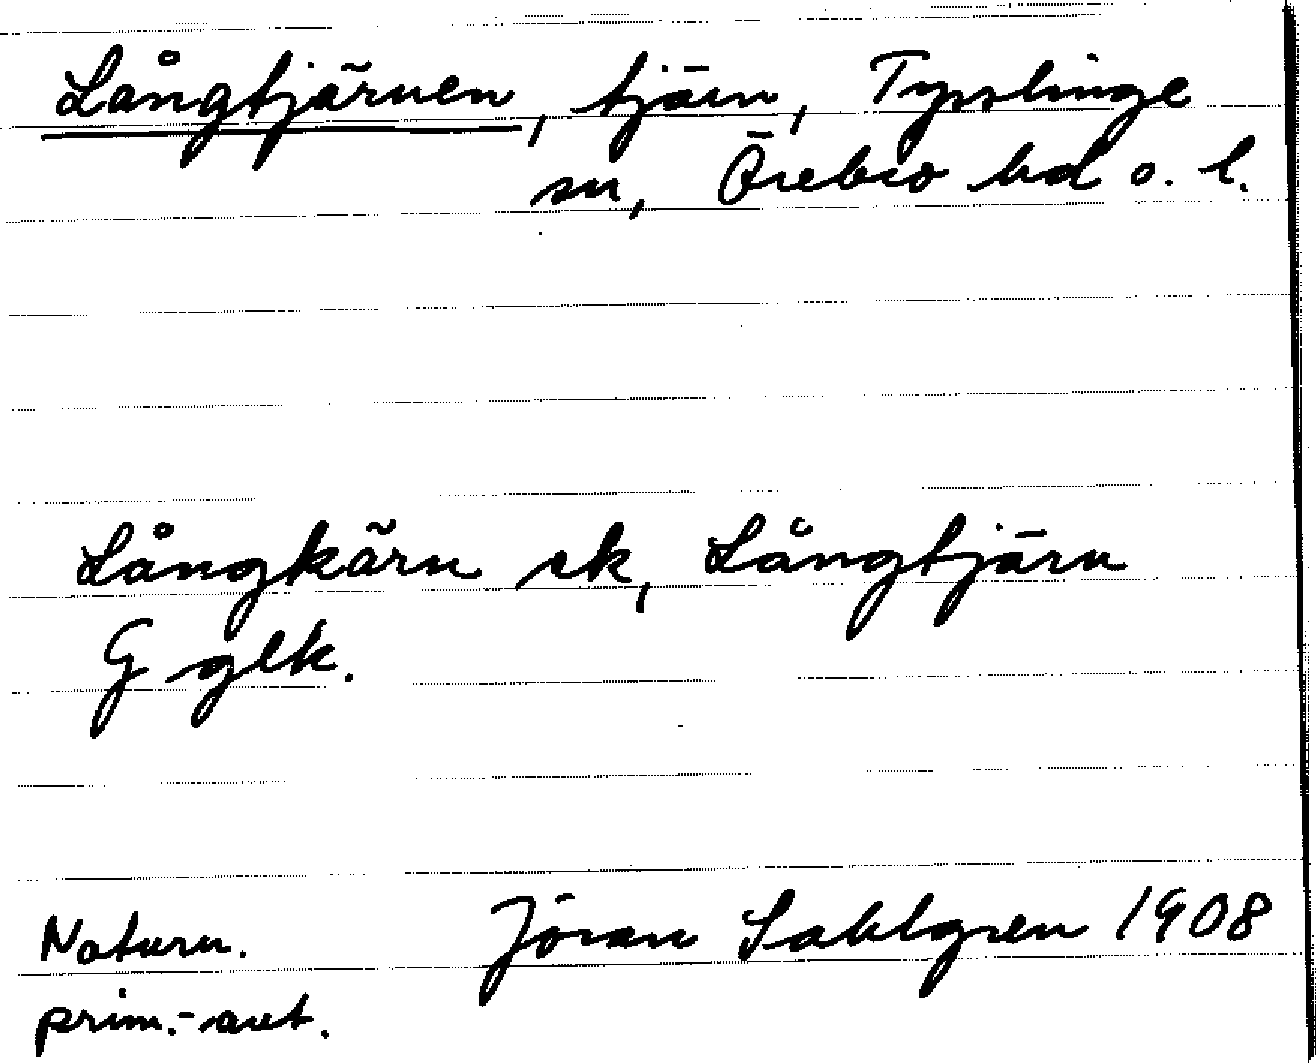 Långtjärnen, tjärn, Tysslinge
sn, Örebro hd o. l.
Långkärn ek, Långtjärn
G glk.
Naturn. Jöran Sahlgren 1908
prim.-avt.